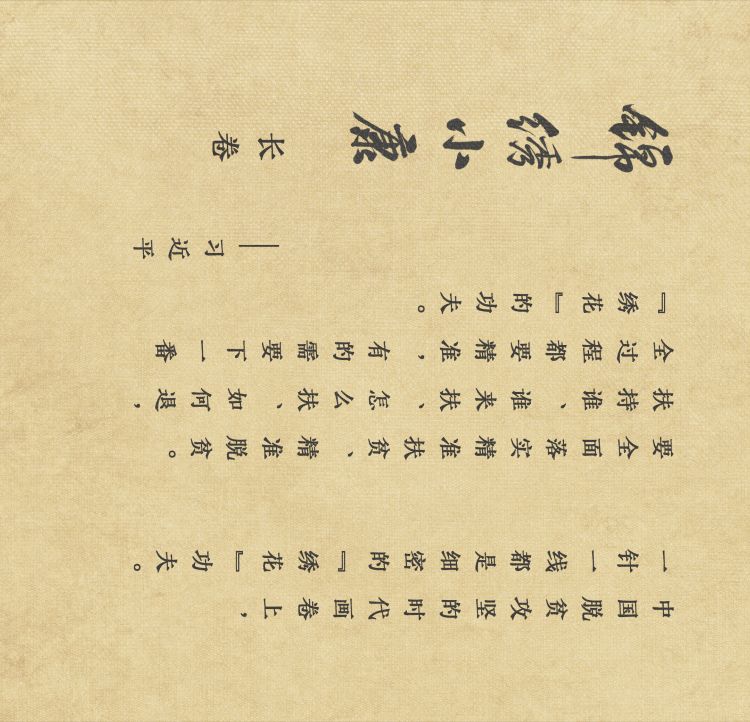 中国脱贫攻坚的时代画卷上，
一针一线都是细密的『绣花』功夫。
要全面落实精准扶贫、精准脱贫。
扶持谁、谁来扶、怎么扶、如何退，
全过程都要精准，有的需要下一番
『绣花』的功夫。
——习近平
锦绣小康
长卷